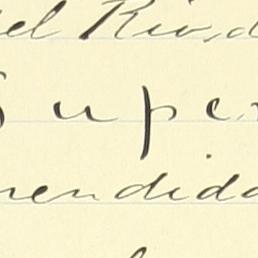 el Rio, d
Supe
mendida